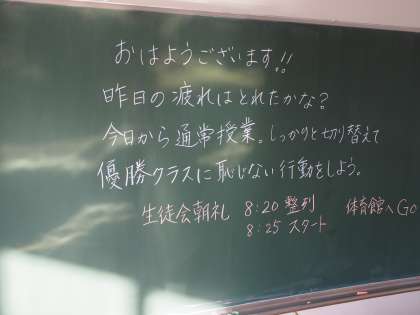 おはようございます!!
昨日の疲れはとれたかな？
今日から通常授業。しっかりと切り替えて
優勝クラスに恥じない行動をしよう。
生徒会朝礼 8:20 整列 体育館へGO
8:25 スタート